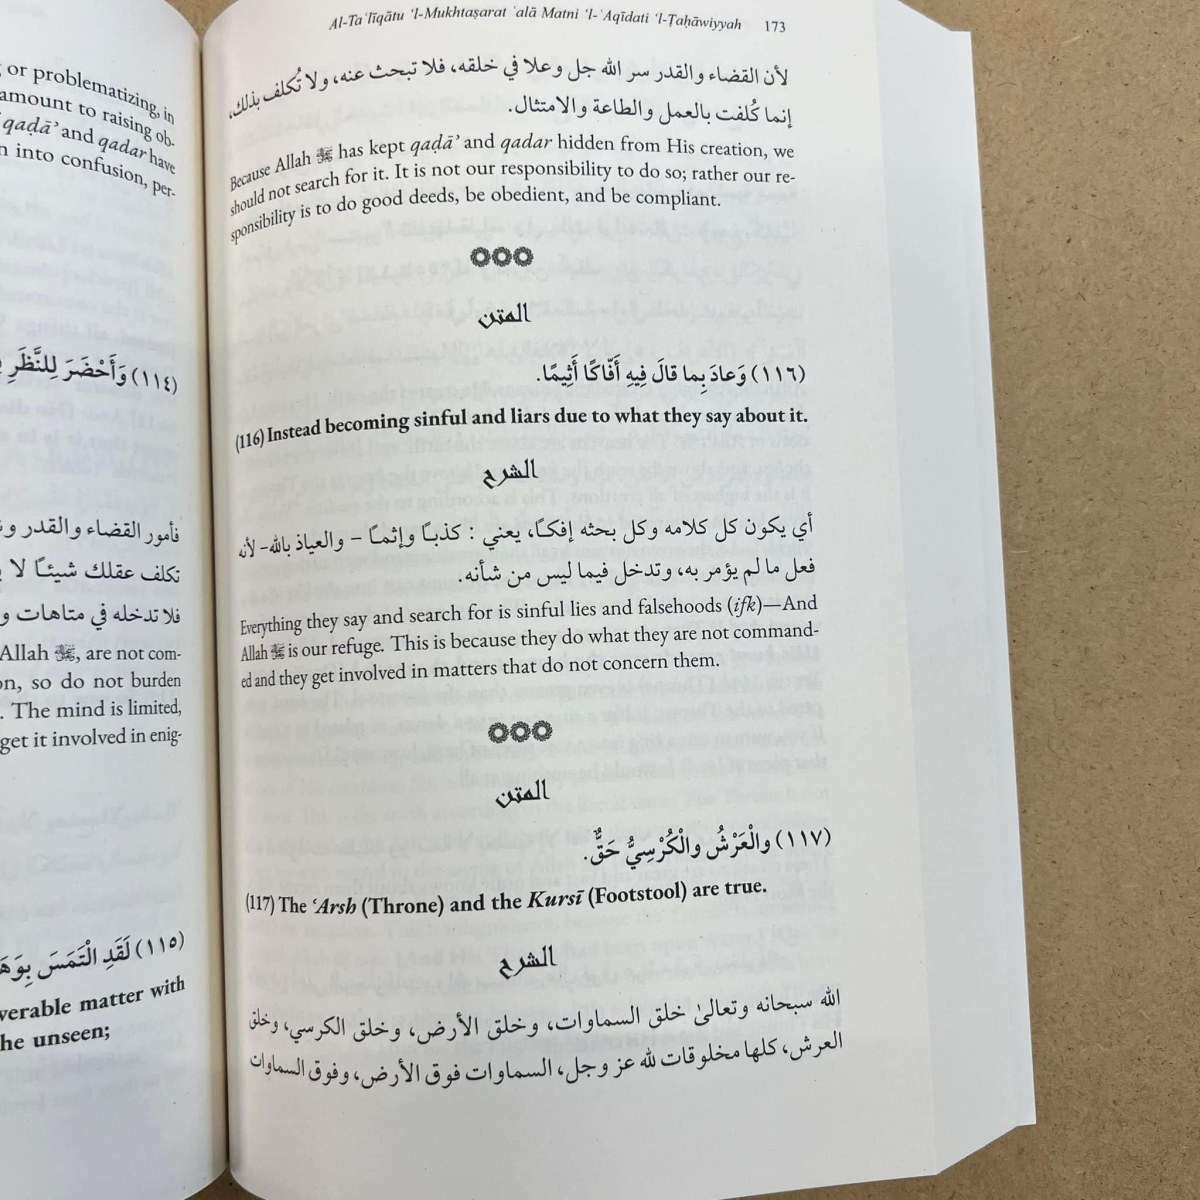 or problematizing, in
amount to raising ob-
qaḍā’ and qadar have
into confusion, per-
(١١٤) وَأَحْضَرَ لِلنَّظَرِ
فأمور القضاء والقدر
تكلف عقلك شيئًا لا
فلا تدخله في متاهات
Allah ﷻ, are not com-
so do not burden
. The mind is limited,
get it involved in enig-
(١١٥) لَقَدِ الْتَمَسَ
verable matter with
he unseen;
Al-Taʿlīqātu ’l-Mukhtaṣarat ʿalā Matni ’l-ʿAqīdati ’l-Ṭaḥāwiyyah 173
لأن القضاء والقدر سر الله جل وعلا في خلقه، فلا تبحث عنه، ولا تُكلف بذلك،
إنما كُلفت بالعمل والطاعة والامتثال.
Because Allah ﷻ has kept qaḍā’ and qadar hidden from His creation, we
should not search for it. It is not our responsibility to do so; rather our re-
sponsibility is to do good deeds, be obedient, and be compliant.
المتن
(١١٦) وَعادَ بِما قالَ فِيهِ أَفّاكًا أَثِيمًا.
(116) Instead becoming sinful and liars due to what they say about it.
الشرح
أي يكون كل كلامه وكل بحثه إفكًا، يعني: كذبًا وإثمًا – والعياذ بالله- لأنه
فعل ما لم يؤمر به، وتدخل فيما ليس من شأنه.
Everything they say and search for is sinful lies and falsehoods (ifk)—And
Allah ﷻ is our refuge. This is because they do what they are not command-
ed and they get involved in matters that do not concern them.
المتن
(١١٧) والْعَرْشُ والْكُرْسِيُّ حَقٌّ.
(117) The ʿArsh (Throne) and the Kursī (Footstool) are true.
الشرح
الله سبحانه وتعالىٰ خلق السماوات، وخلق الأرض، وخلق الكرسي، وخلق
العرش، كلها مخلوقات لله عز وجل، السماوات فوق الأرض، وفوق السماوات